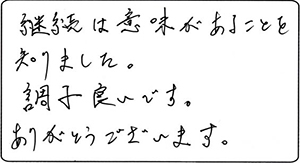 継続は意味があることを
知りました。
調子良いです。
ありがとうございます。